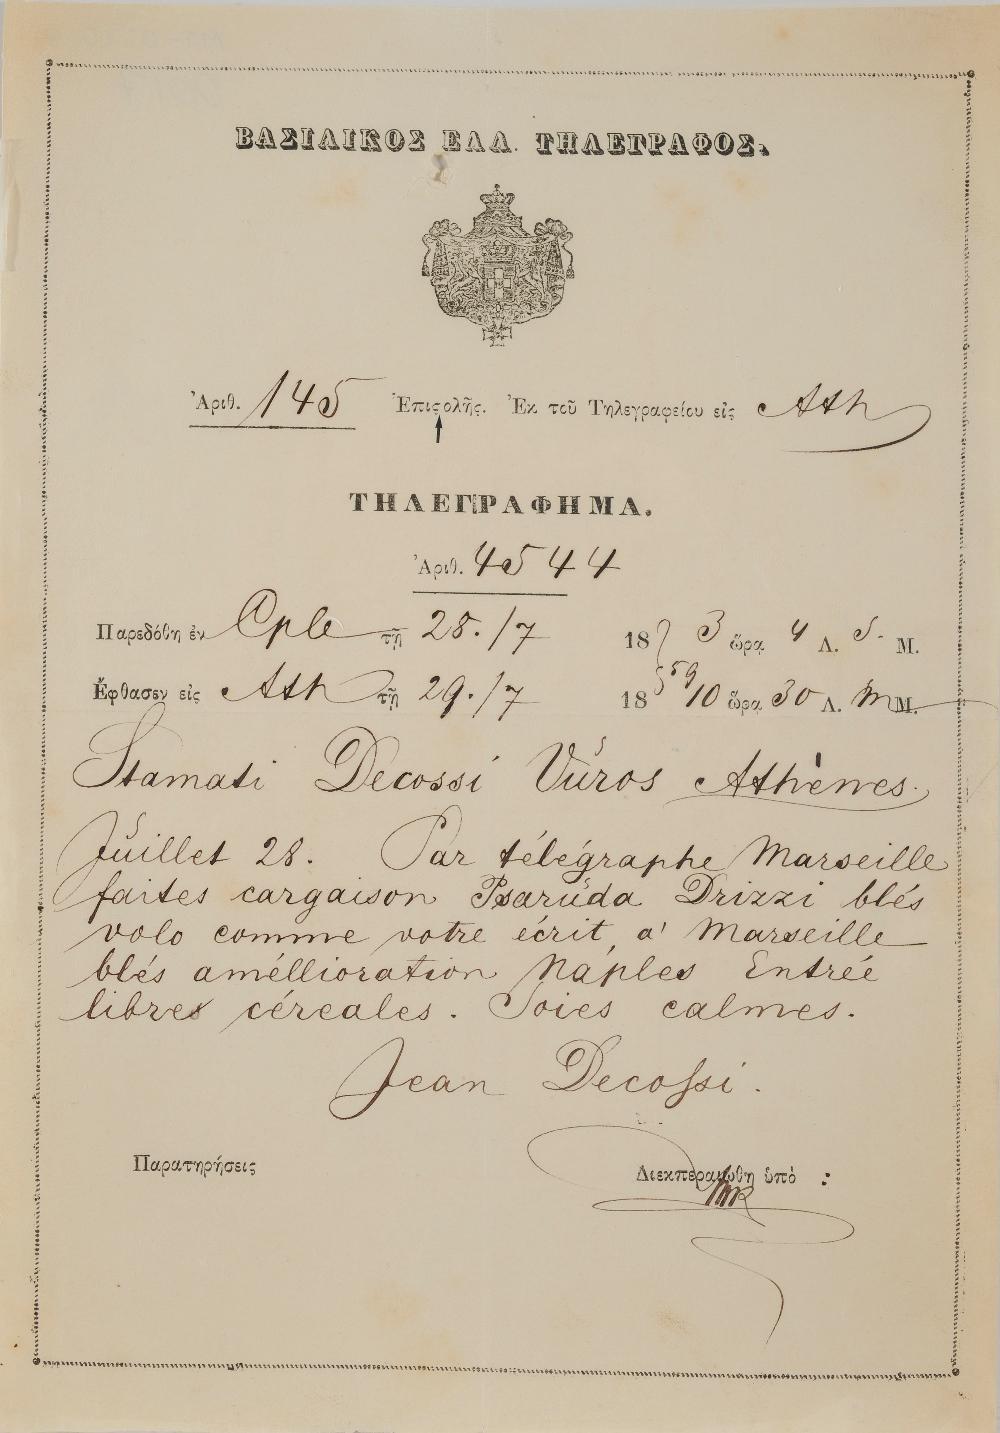 ΒΑΣΙΛΙΚΟΣ ΕΛΛ. ΤΗΛΕΓΡΑΦΟΣ.
Ἀριθ. 145 Ἐπιςολῆς. Ἐκ τοῦ Τηλεγραφείου εἰς Ath
ΤΗΛΕΓΡΑΦΗΜΑ.
Ἀριθ. 4544
Παρεδόθη ἐν Cple τῇ 28./7 18 3 ὥρᾳ 4 Λ. s. Μ.
Ἔφθασεν εἰς Ath τῇ 29./7 1859 10 ὥρᾳ 30 Λ. m Μ.
Stamati Decossi Vŭros Athènes.
Jŭillet 28. Par télégraphe Marseille
faites cargaison Psarŭda Drizzi blés
volo comme votre écrit, a' Marseille
blés améllioration Naples Entrée
libres céreales. Soies calmes.
Jean Decossi.
Παρατηρήσεις Διεκπεραιώθη ὑπὸ :